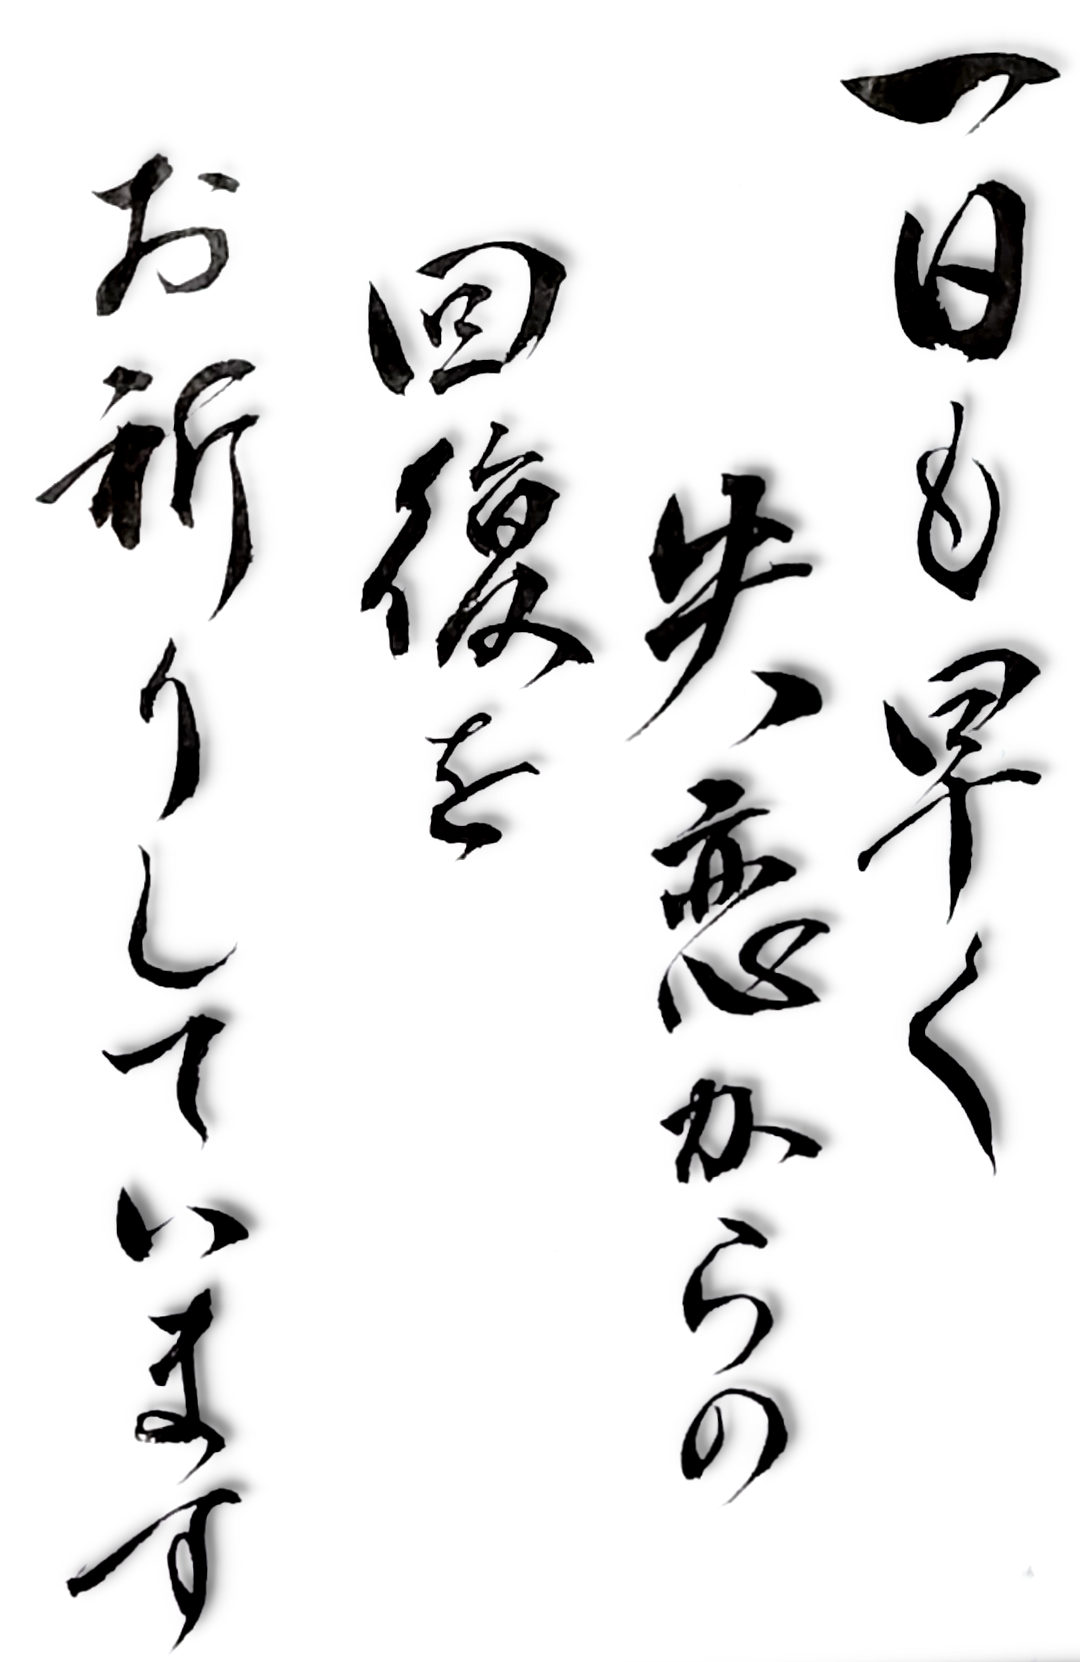 一日も早く
失恋からの
回復を
お祈りしています